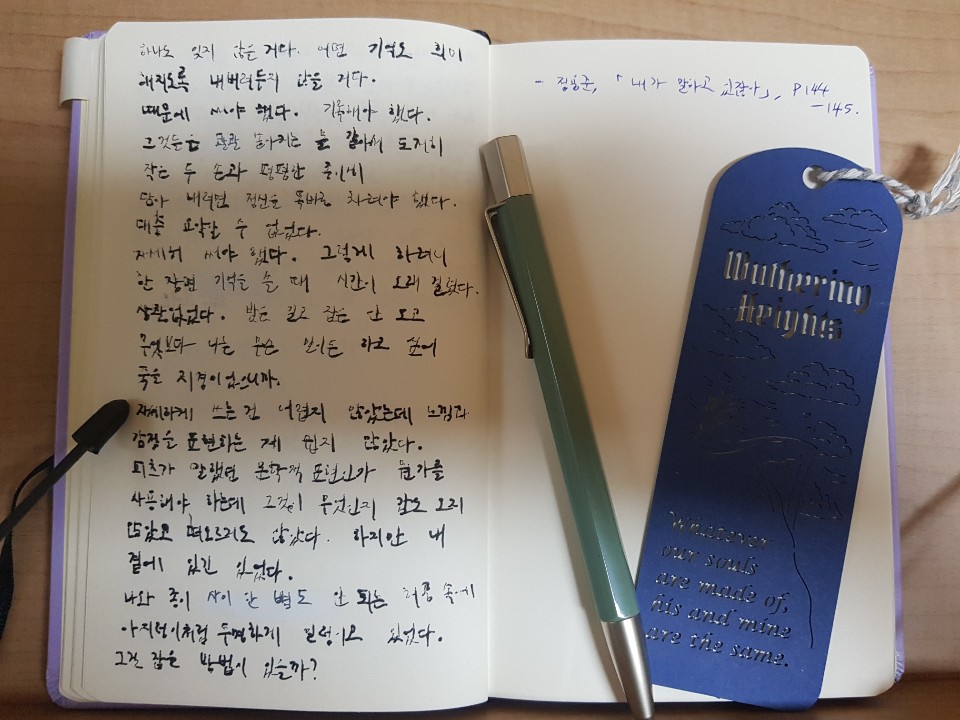 하나도 잊지 않은 거다. 어떤 기억도 희미
해지도록 내버려두지 않을 거다.
때문에 써야 했다. 기록해야 했다.
그것들은 콸콸 쏟아지는 물 같아서 도저히
작은 두 손과 평평한 종이에
담아 내려면 정신을 똑바로 차려야 했다.
대충 요약할 수 없었다.
자세히 써야 했다. 그렇게 하려니
한 장면 기억을 쓸 때 시간이 오래 걸렸다.
상관없었다. 밤은 길고 잠은 안 오고
무엇보다 나는 무슨 일이든 하고 싶어
죽을 지경이었으니까.
자세하게 쓰는 건 어렵지 않았는데 느낌과
감정을 표현하는 게 쉽지 않았다.
말했던 문학적 표현인가 뭔가를
사용해야 하는데 그것이 무엇인지 감도 오지
않았고 떠오르지도 않았다. 하지만 내
곁에 있긴 있었다.
나와 종이 사이 한 뼘도 안 되는 허공 속에
아지랑이처럼 투명하게 일렁이고 있었다.
그걸 잡을 방법이 있을까?
- 정용준, 「내가 말하고 있잖아」, P144
-145.
Wuthering
Heights
Whatever
our souls
are made of,
his and mine
are the same.